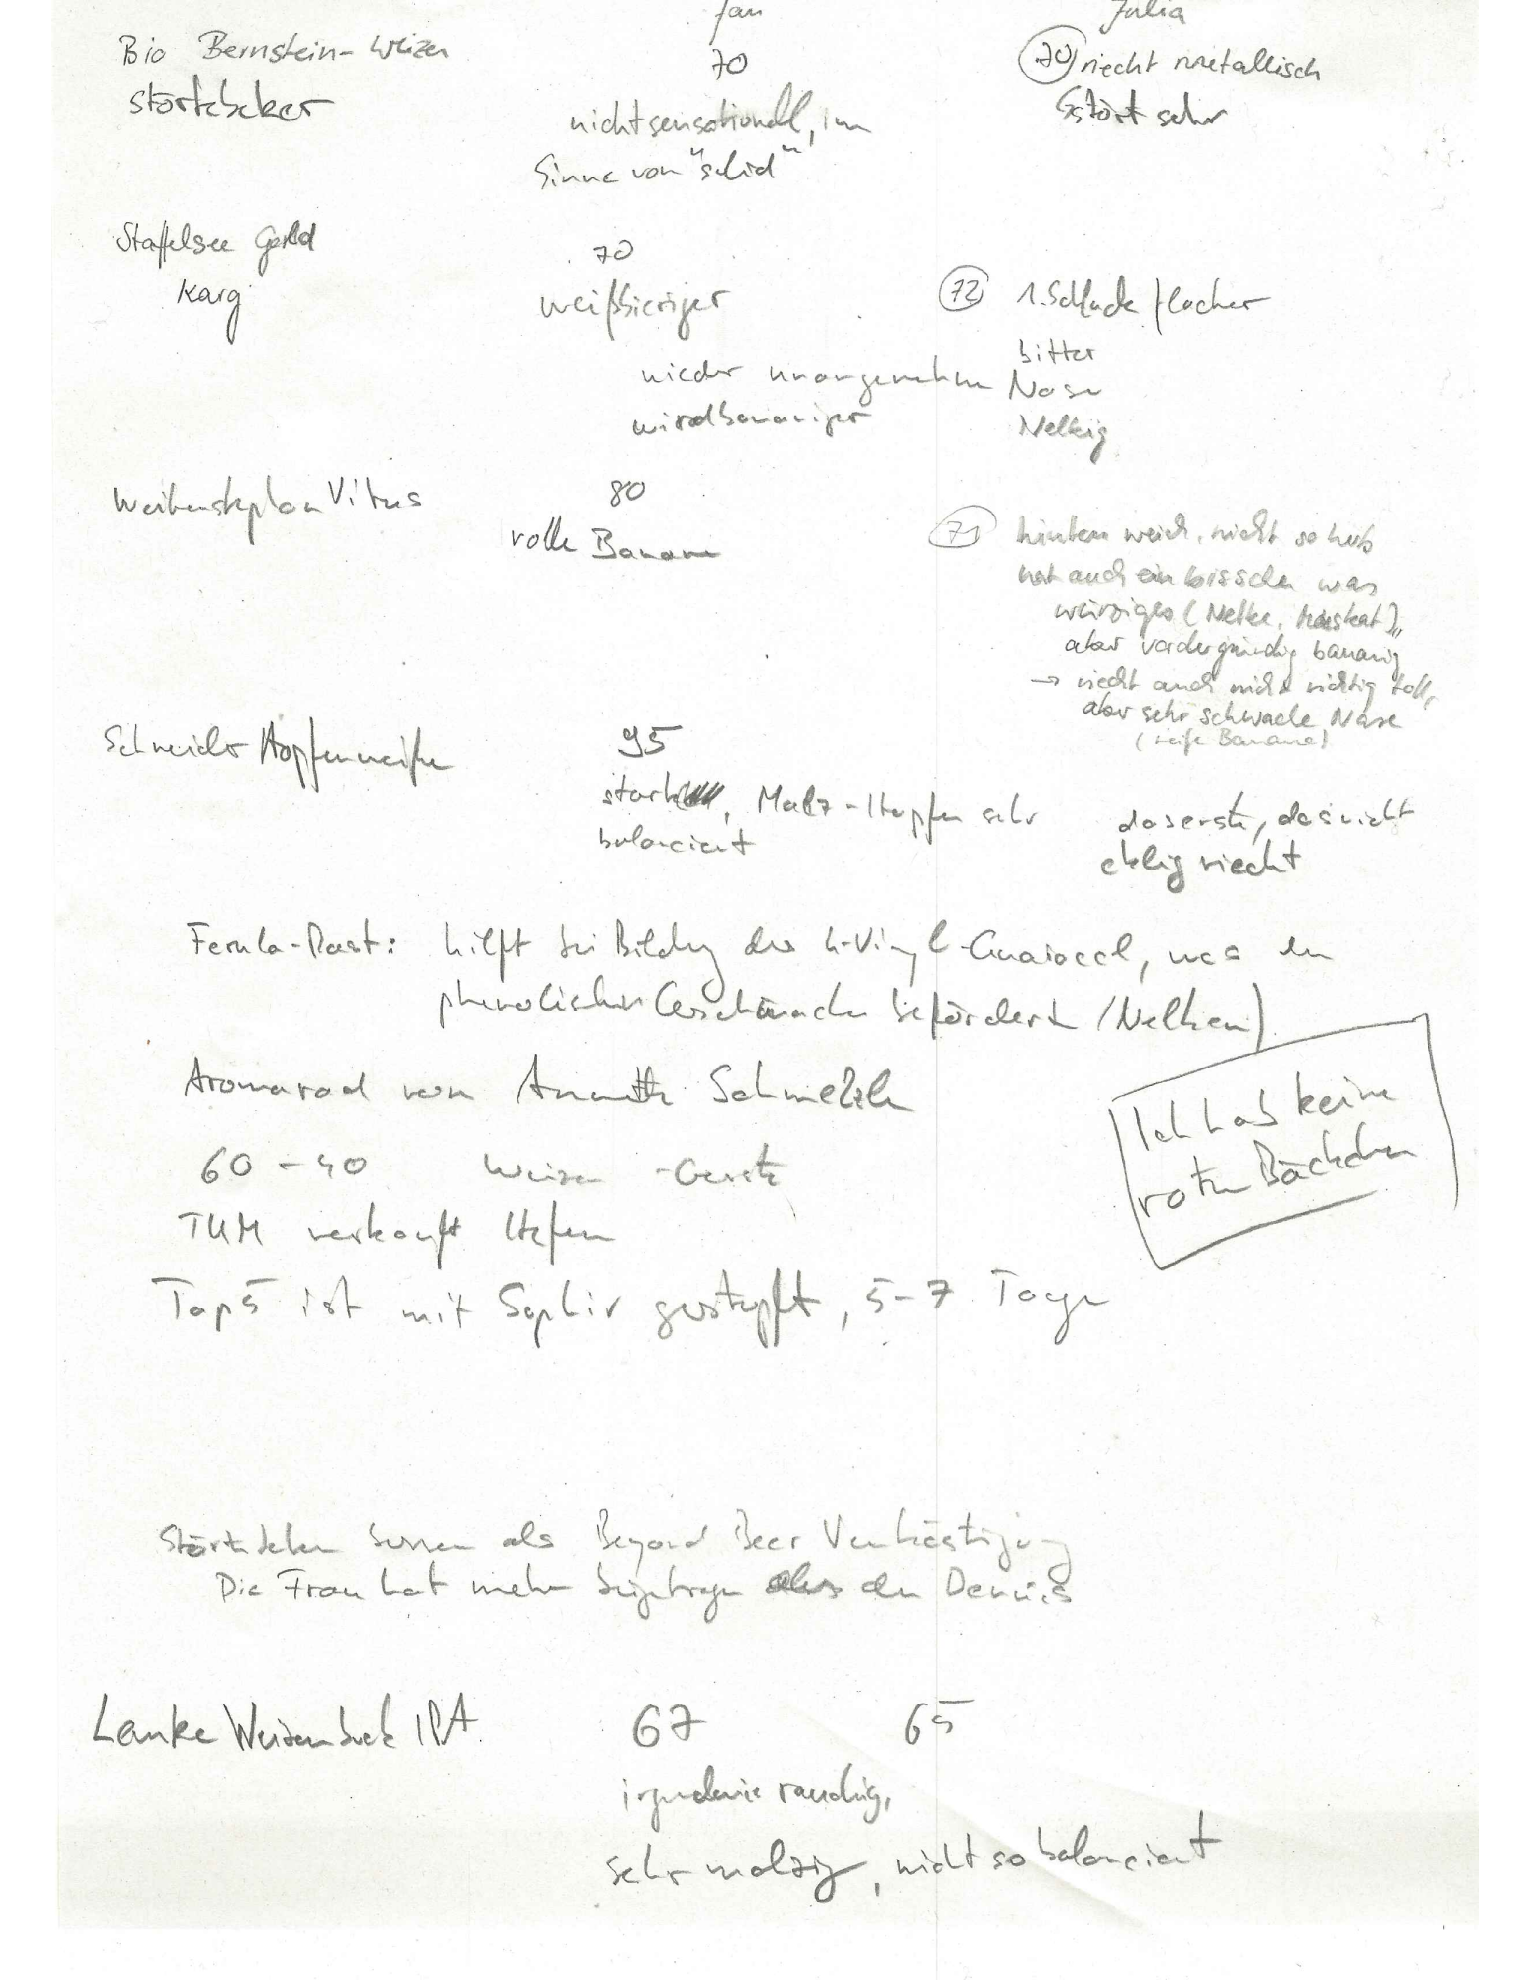 Jan Julia
Bio Bernstein-Weizen 70 70 riecht metallisch
Störtebeker Stört sehr
nicht sensationell, im
Sinne von "solid"
Staffelsee Gold 70
Karg weißbieriger 72 1. Schluck flacher
bitter
wieder unangenehme Nase
wird bananiger Nelkig
Weihenstephan Vitus 80
volle Banane 71 hinten weich, nicht so herb
hat auch ein bisschen was
würziges (Nelke, Muskat),
aber vordergründig bananig
→ riecht auch nicht richtig toll,
aber sehr schwache Nase
(reife Banane)
Schneider Hopfenweiße 95
stark, Malz-Hopfen sehr
balanciert
das erste, das nicht
eklig riecht
Ferula-Rast: hilft bei Bildung des 4-Vinyl-Guaiacol, was den
phenolischen Geschmack befördert (Nelken)
Aromarad von Annette Schmelzle
60-40 Weizen-Gerste
TUM verkauft Hefen
Tap5 ist mit Saphir gestopft, 5-7 Tage
Ich hab keine
roten Bäckchen
als Beyond Beer Verköstigung
Die Frau hat mehr beigetragen als der Dennis
Lanke Weizenbock IPA 67 65
irgendwie rauchig,
sehr malzig, nicht so balanciert